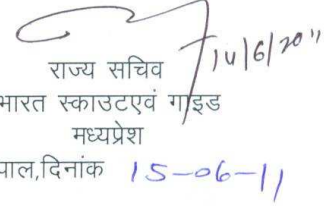 14/6/2011
राज्य सचिव
भारत स्काउटएवं गाइड
मध्यप्रेश
पाल,दिनांक 15-06-11